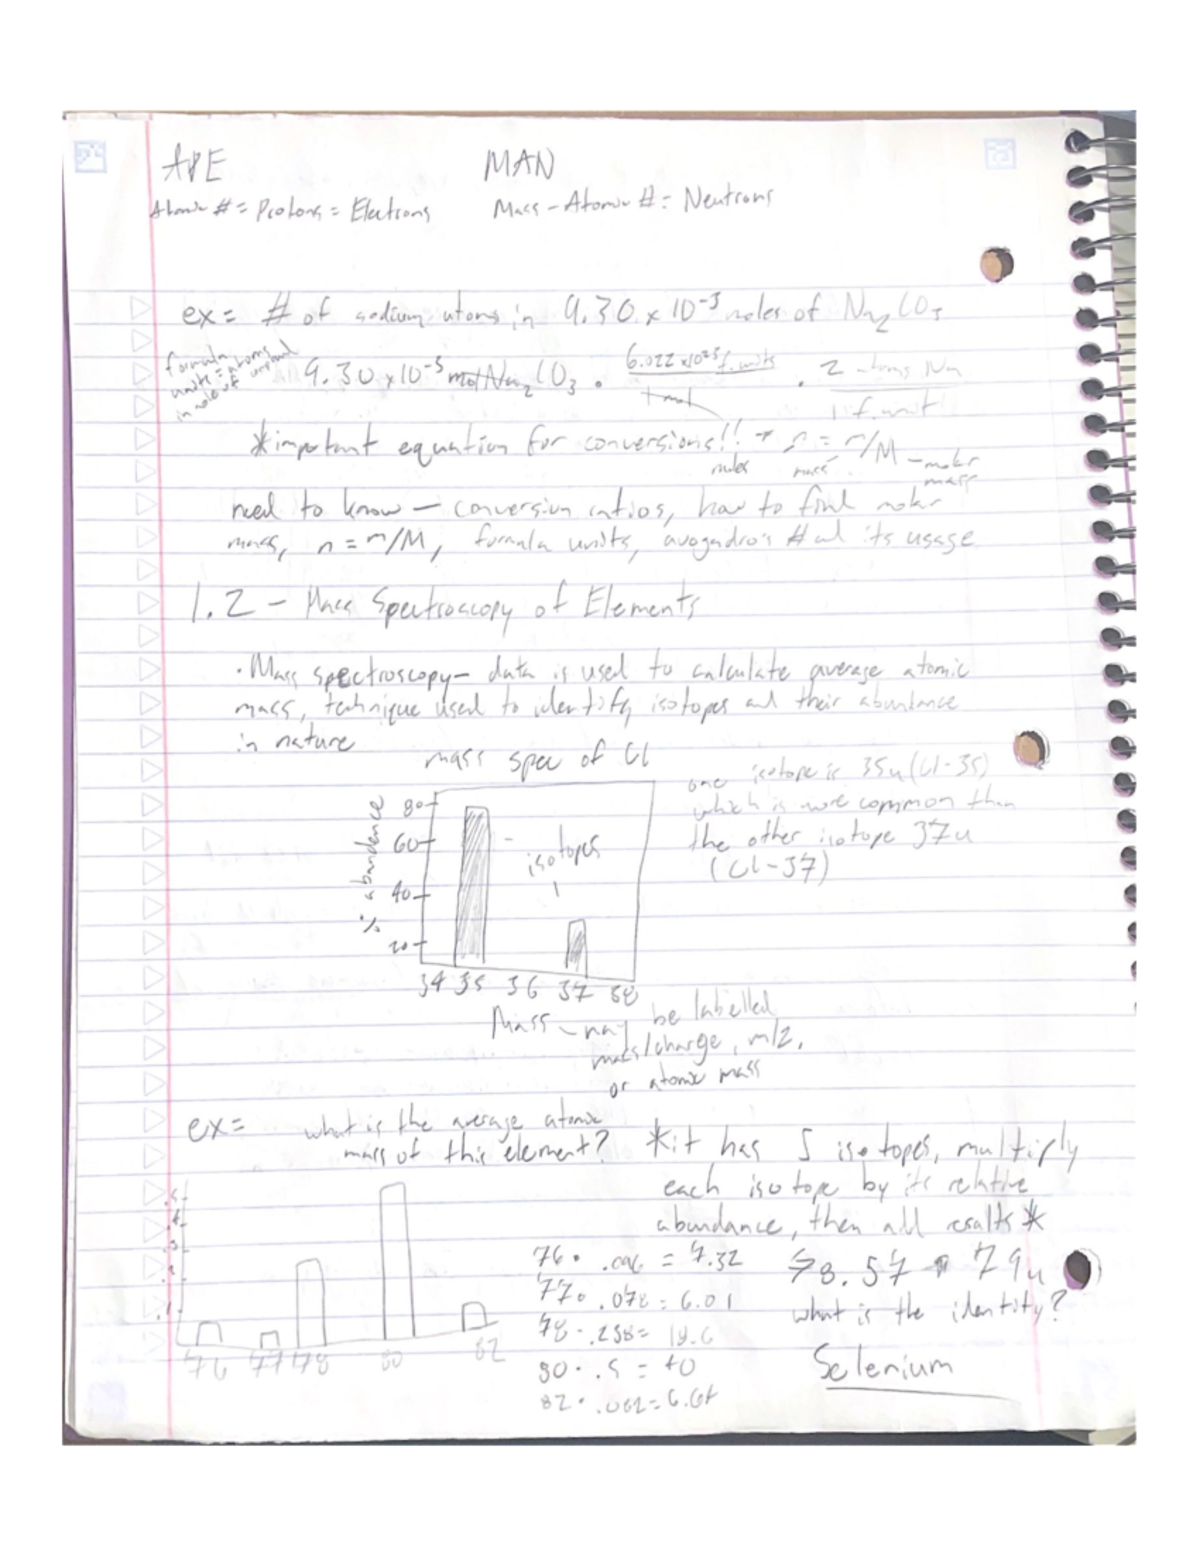 APE MAN
Atomic # = Protons = Electrons Mass - Atomic # = Neutrons
ex = # of sodium atoms in 9.30 x 10⁻³ moles of Na₂CO₃
formula
units = atoms
in mole of
9.30 x 10⁻⁵ mol Na₂CO₃ · 6.022 x10²³ f. units / 1 mol · 2 atoms Na / 1 f. unit
*important equation for conversions!! → n = m/M - molar mass
moles mass
need to know - conversion ratios, how to find molar
mass, n = m/M, formula units, avogadro's # and its usage
1.2 - Mass Spectroscopy of Elements
· Mass spectroscopy - data is used to calculate average atomic
mass, technique used to identify isotopes and their abundance
in nature
mass spec of Cl
% abundance
80
60
40
20
isotopes
34 35 36 37 38
Mass - may be labelled
mass/charge, m/z,
or atomic mass
one isotope is 35u (Cl-35)
which is more common than
the other isotope 37u
(Cl-37)
ex = what is the average atomic
mass of this element?
*it has 5 isotopes, multiply
each isotope by its relative
abundance, then add results*
.5
.4
.3
.2
.1
76 77 78 80 82
76 · .096 = 7.32
77 · .078 = 6.01
78 · .238 = 18.6
80 · .5 = 40
82 · .082 = 6.64
78.57 79u
what is the identity?
Selenium